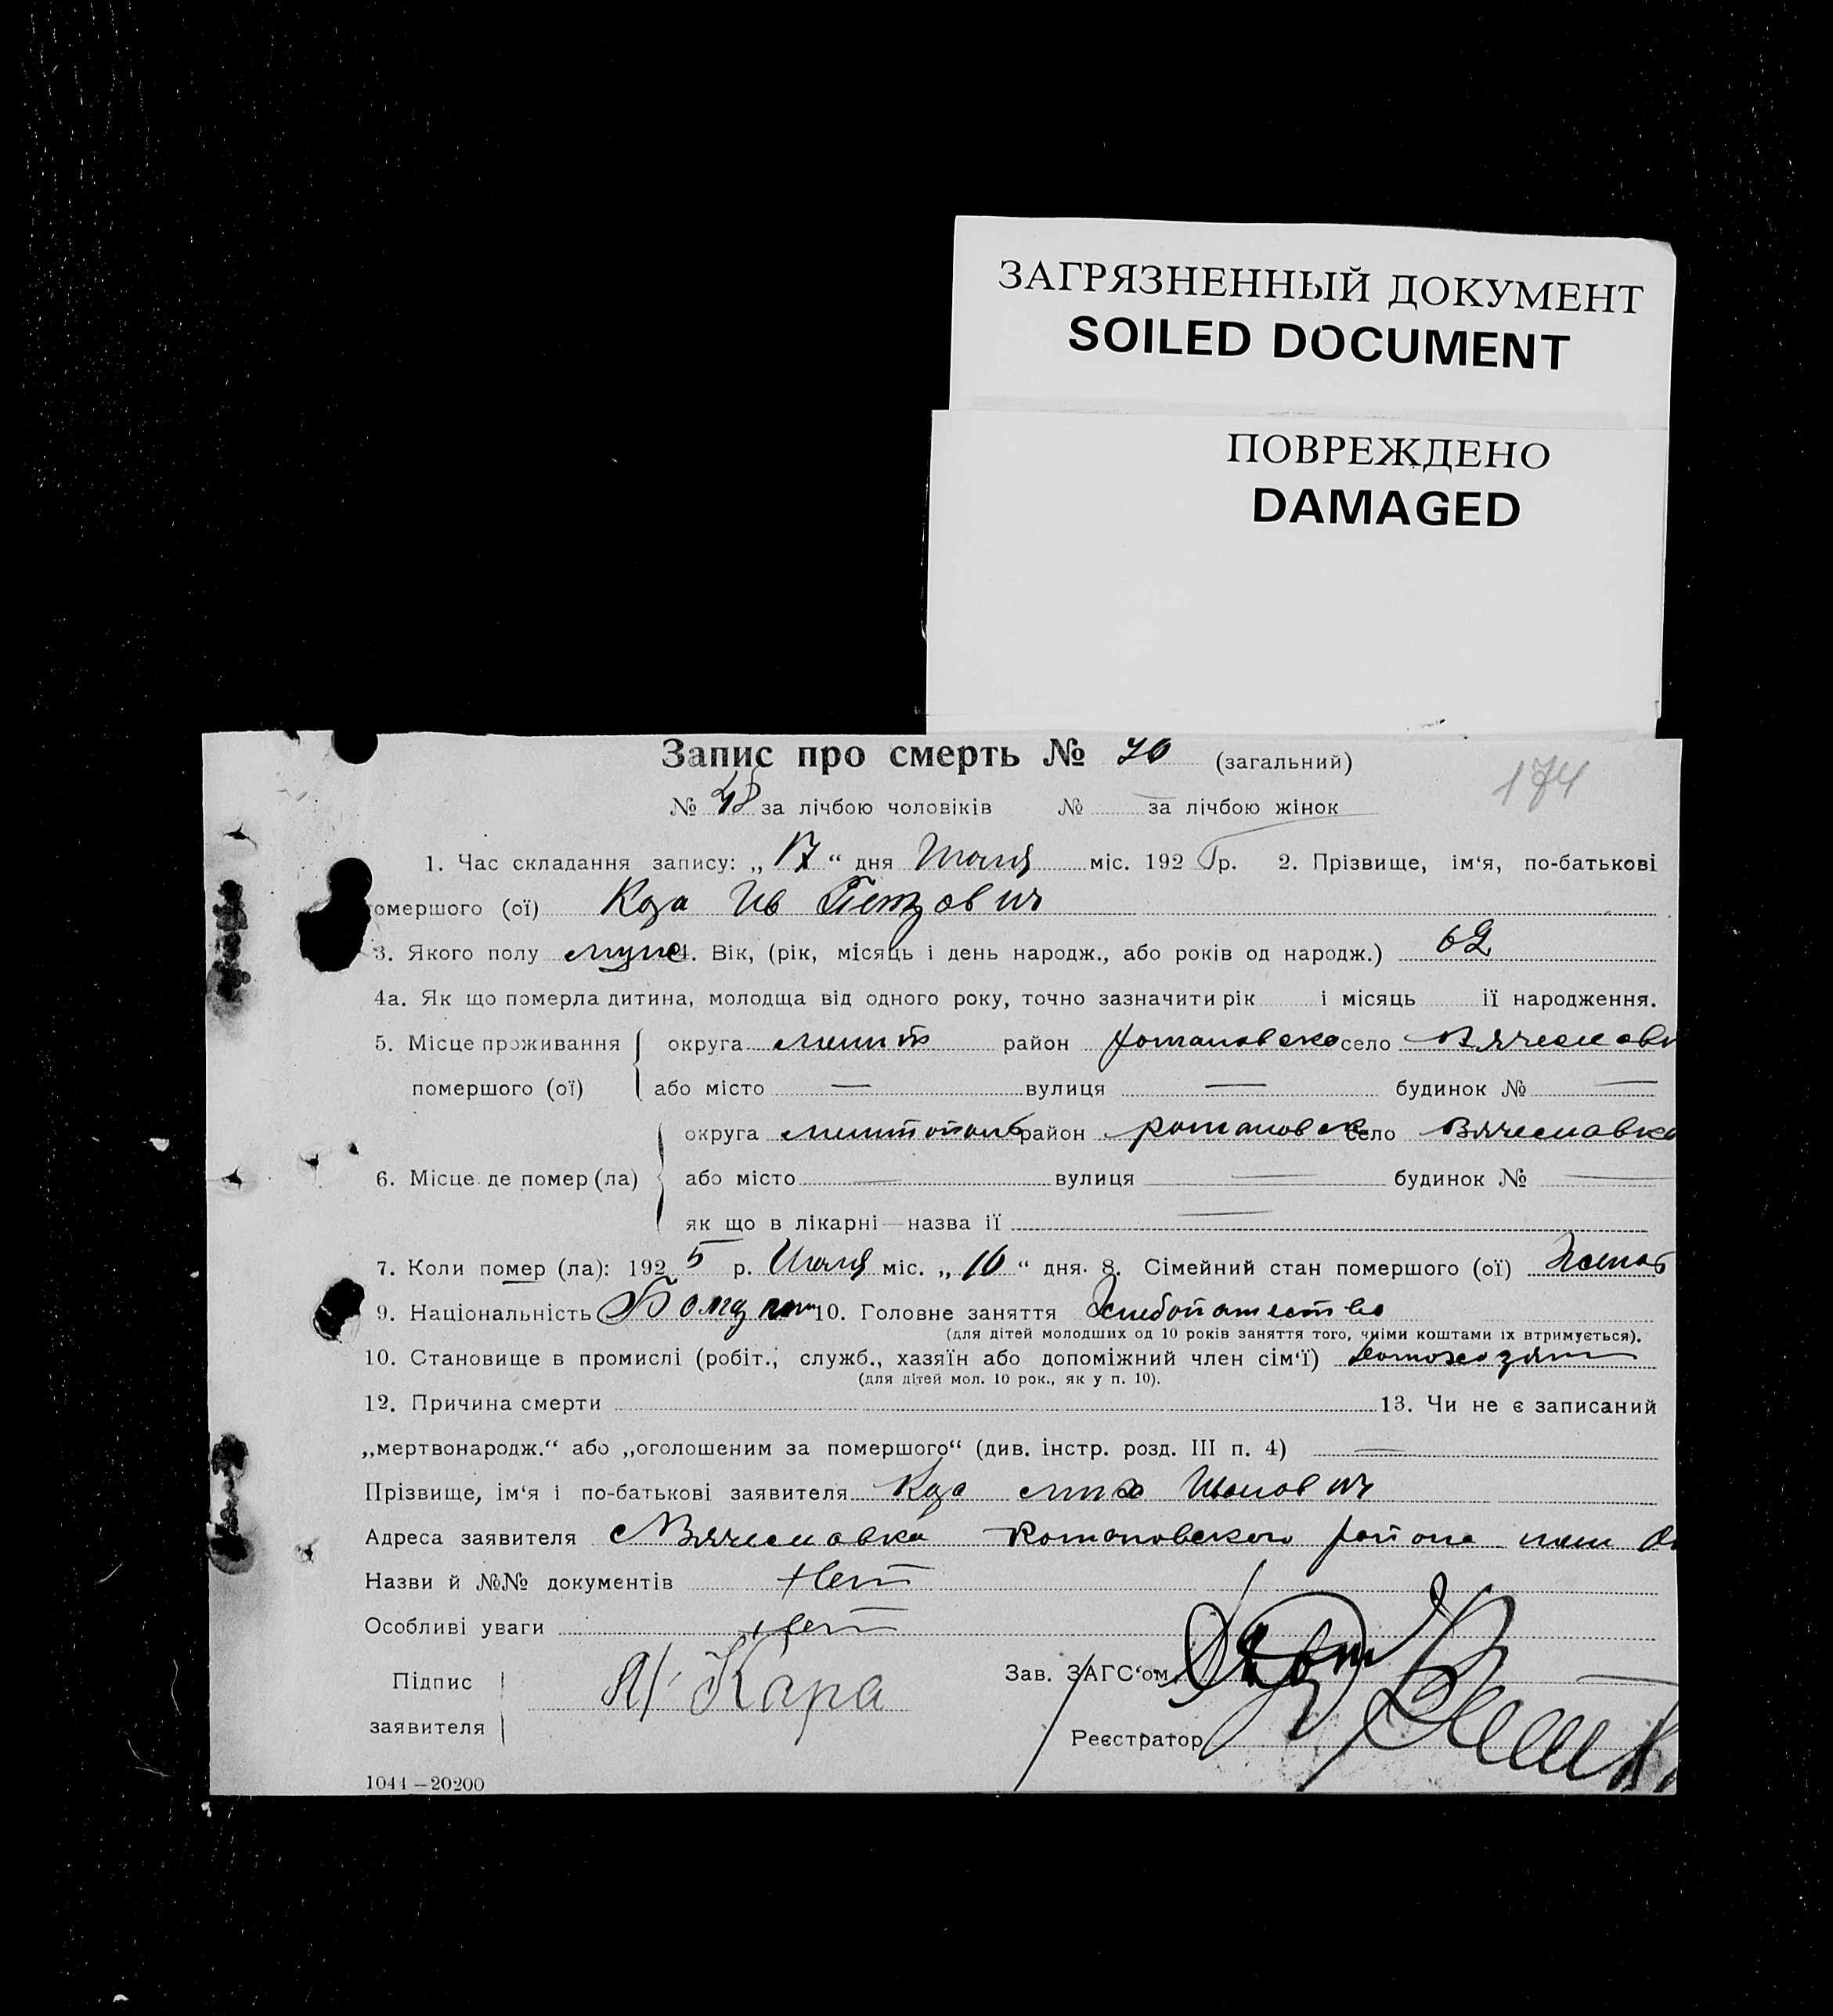 ЗАГРЯЗНЕННЫЙ ДОКУМЕНТ
SOILED DOCUMENT
ПОВРЕЖДЕНО
DAMAGED
Запис про смерть № 70 (загальний)
174
№ 48 за лічбою чоловіків № за лічбою жінок
1. Час складання запису: „ 17 “ дня міс. 192 р. 2. Прізвище, ім‘я, по-батькові
омершого (ої) Ив Петрович
3. Якого полу муж 4. Вік, (рік, місяць і день народж., або років од народж.) 62
4а. Як що померла дитина, молодща від одного року, точно зазначити рік і місяць її народження.
5. Місце проживання округа район село
помершого (ої) або місто — вулиця — будинок № —
округа район село Вячеславка
6. Місце де помер (ла) або місто — вулиця — будинок № —
як що в лікарні — назва її —
7. Коли помер (ла): 192 5 р. міс. „ 16 “ дня. 8. Сімейний стан помершого (ої) Женат
9. Національність 10. Головне заняття Хлебопашество
(для дітей молодших од 10 років заняття того, чиіми коштами їх втримується).
10. Становище в промислі (робіт., служб., хазяїн або допоміжний член сім‘ї) домохозяин
(для дітей мол. 10 рок., як у п. 10).
12. Причина смерти 13. Чи не є записаний
„мертвонародж.“ або „оголошеним за помершого“ (див. інстр. розд. III п. 4) —
Прізвище, ім‘я і по-батькові заявителя Иванович
Адреса заявителя с Вячеславка Романовского района
Назви й №№ документів Нет
Особливі уваги Нет
Підпис
заявителя Кара
Зав. ЗАГС‘ом
Реєстратор
1044—20200